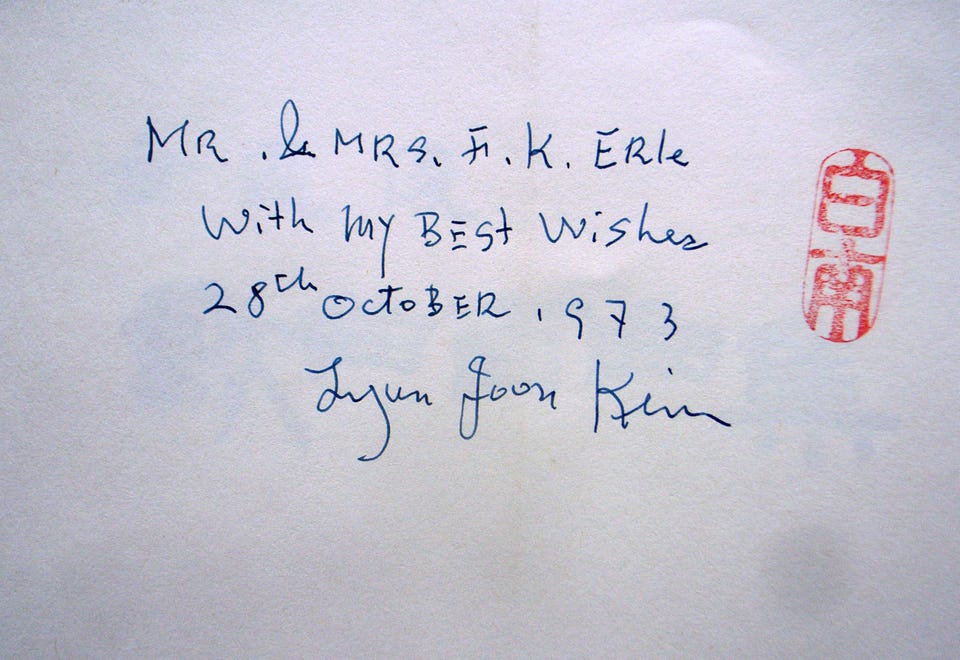 MR. & MRS. F. K. ERle
With my BEst Wishes
28th OctoBER, 1973
Lyun Joon Kim
白南